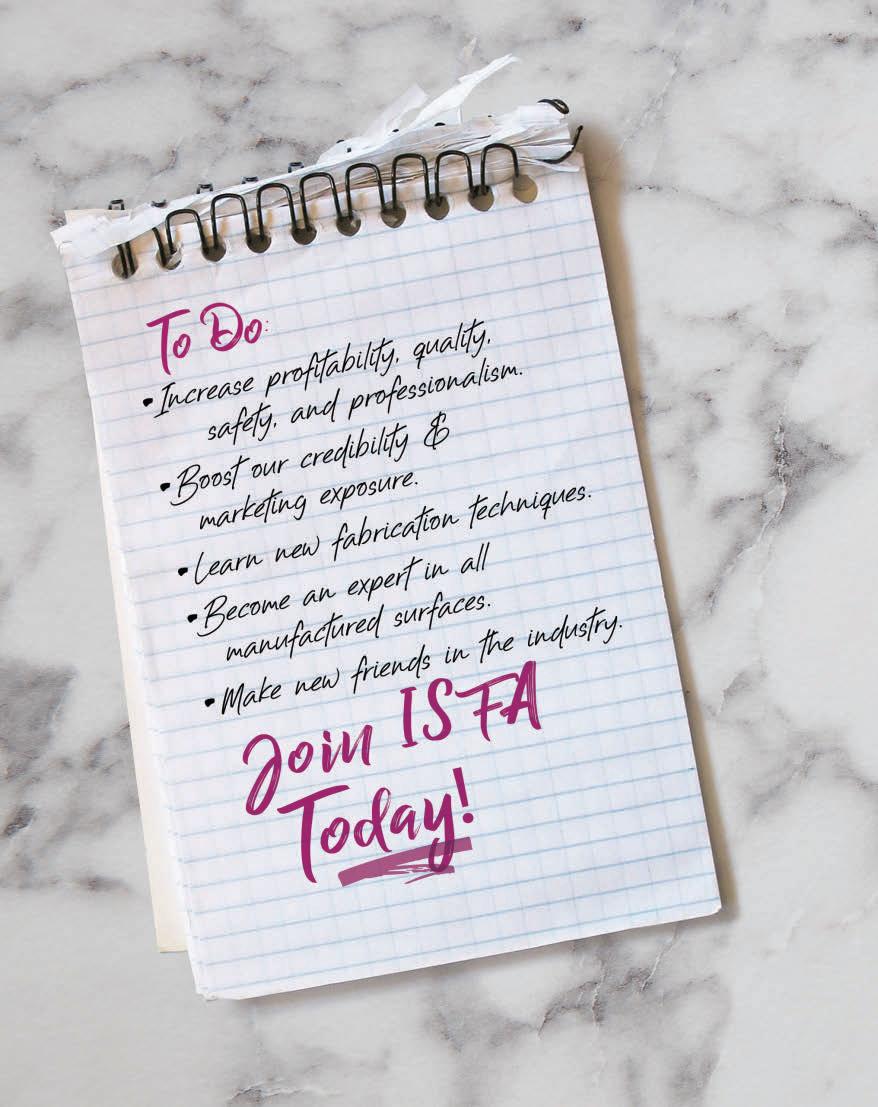 To Do:
•Increase profitability, quality,
safety, and professionalism.
•Boost our credibility &
marketing exposure.
•Learn new fabrication techniques.
•Become an expert in all
manufactured surfaces.
•Make new friends in the industry.
Join ISFA
Today!